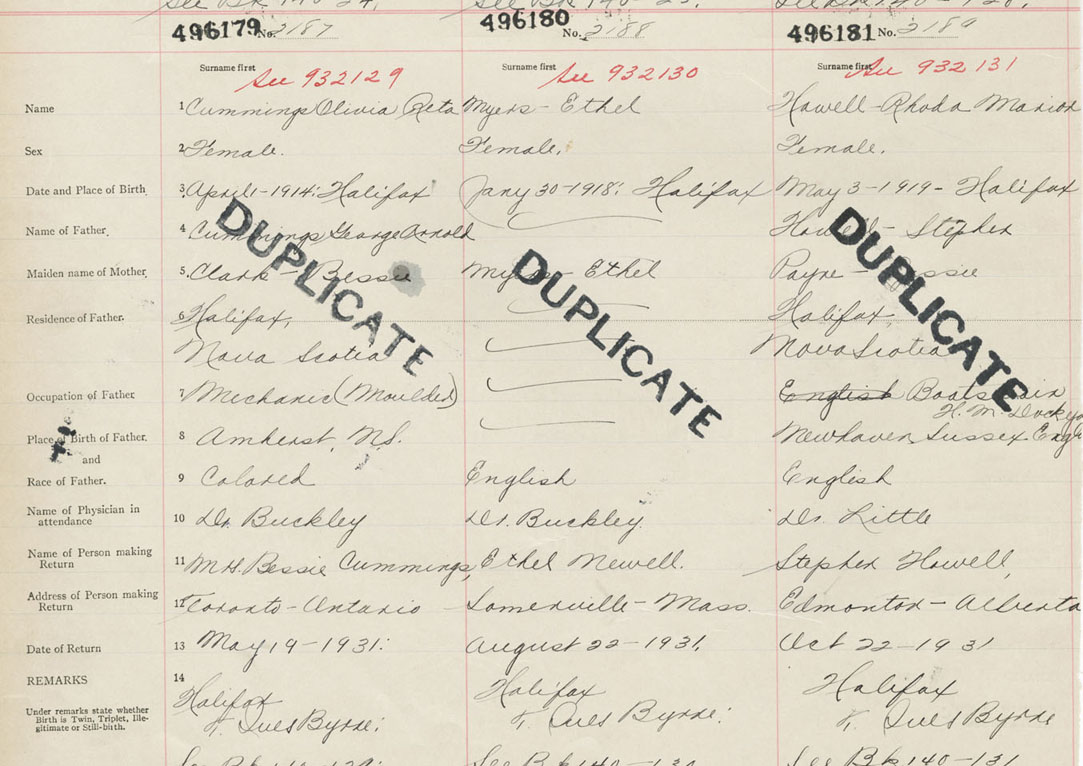 See Bk 140-
496179 No. 2187
496180 No. 2188
496181 No. 2189
Surname first Surname first Surname first
See 932129 See 932130 See 932131
Name 1 Cummings Olivia Reta Myers - Ethel Howell - Rhoda Marion
Sex 2 Female. Female. Female.
Date and Place of Birth 3 April - 1914: Halifax Jany 30 - 1918: Halifax May 3 - 1919 - Halifax
Name of Father 4 Cummings George Arnold Howell - Stephen
Maiden name of Mother 5. Clark - Bessie Myers - Ethel Payne -
Residence of Father. 6 Halifax, Halifax,
Nova Scotia Nova Scotia
DUPLICATE DUPLICATE DUPLICATE
Occupation of Father 7 Mechanic (Moulder) English Boatswain
H. M. Dockya
Place of Birth of Father. 8 Amherst, N.S. Newhaven Sussex Engl
and
Race of Father. 9 Colored English English
Name of Physician in
attendance 10 Dr. Buckley Dr. Buckley. Dr. Little
Name of Person making
Return 11 Bessie Cummings, Ethel Newell. Stephen Howell,
Address of Person making
Return 12 Toronto - Ontario Somerville - Mass. Edmonton - Alberta
Date of Return 13 May 19 - 1931: August 22 - 1931, Oct 22 - 1931
REMARKS 14
Halifax Halifax Halifax
Under remarks state whether
Birth is Twin, Triplet, Ille-
gitimate or Still-birth.
Byrne: Byrne: Byrne
See Bk 140-131